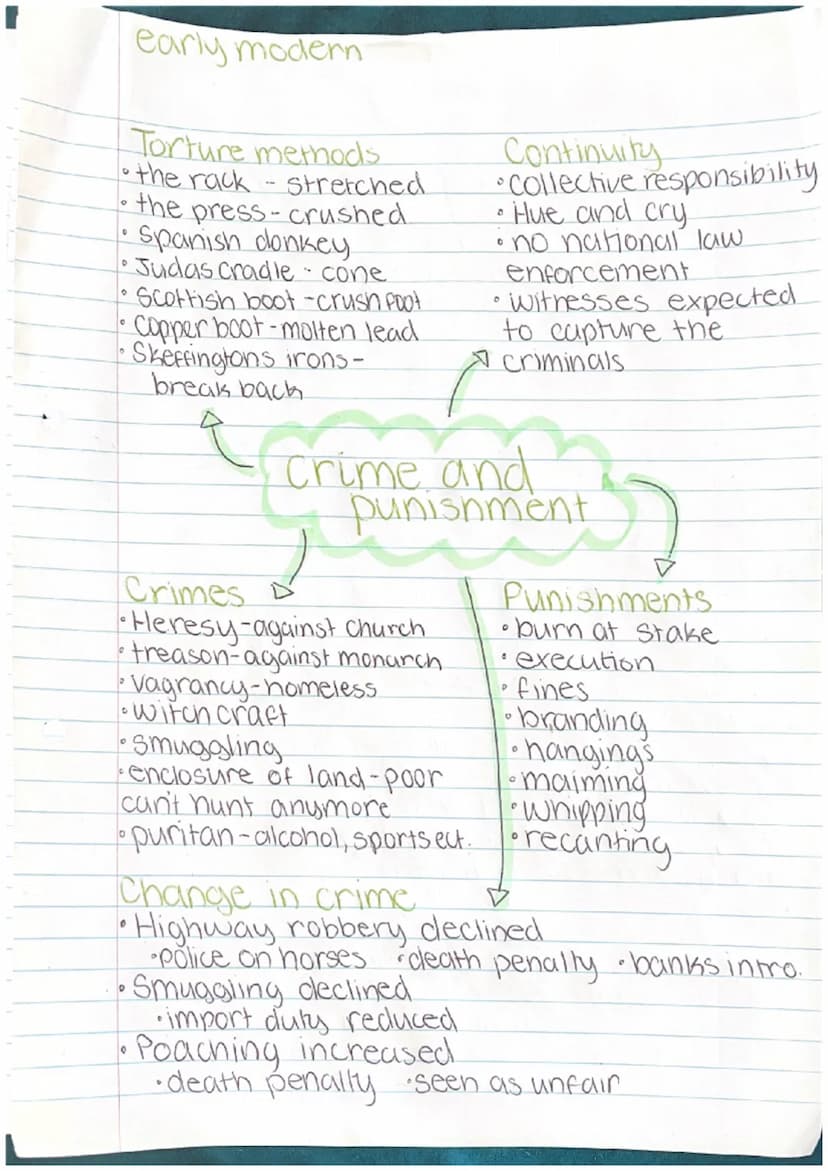 early modern
Torture methods
• the rack - stretched
• the press - crushed
• Spanish donkey
• Judas cradle - cone
• Scottish boot - crush foot
• Copper boot - molten lead
• Skeffingtons irons -
break back
Continuity
• collective responsibility
• Hue and cry
• no national law
enforcement
• witnesses expected
to capture the
criminals
crime and
punishment
Crimes
• Heresy - against church
• treason - against monarch
• vagrancy - homeless
• witchcraft
• smuggling
• enclosure of land - poor
can't hunt anymore
• puritan - alcohol, sports ect.
Punishments
• burn at stake
• execution
• fines
• branding
• hangings
• maiming
• whipping
• recanting
Change in crime
• Highway robbery declined
• police on horses • death penalty • banks intro.
• Smuggling declined
• import duty reduced
• Poaching increased
• death penalty • seen as unfair